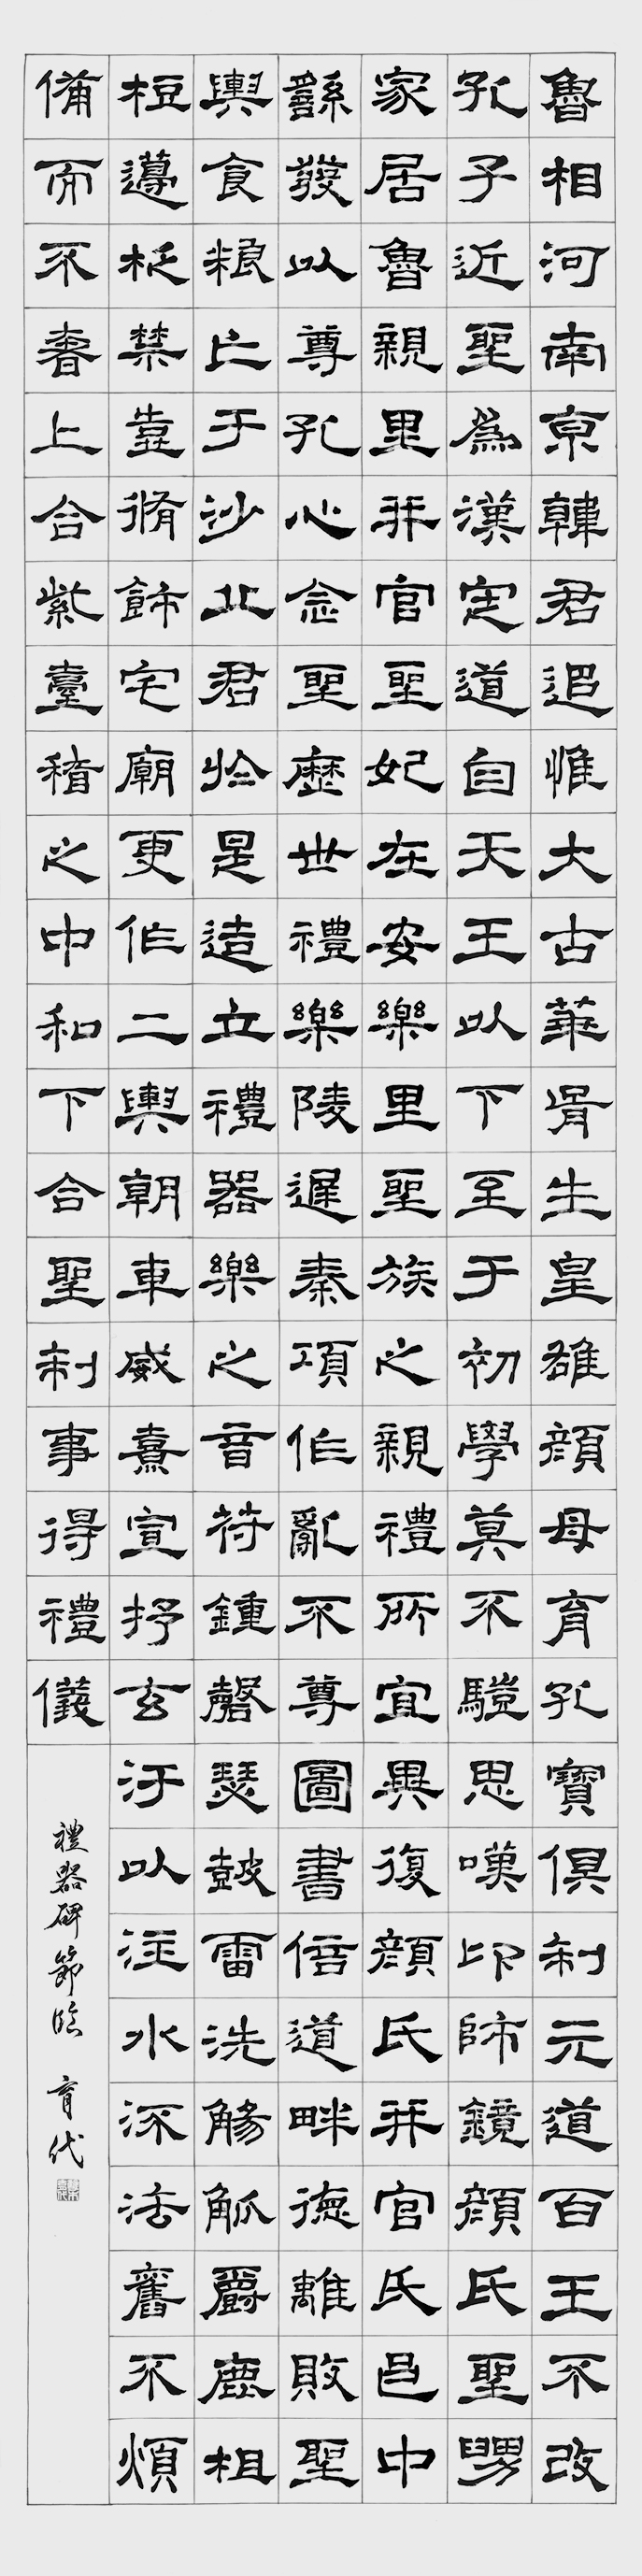 魯相河南京韓君追惟大古華胥生皇雄顏母育孔寶俱制元道百王不改
孔子近聖為漢定道自天王以下至于初學莫不驥思嘆卬師鏡顏氏聖舅
家居魯親里并官聖妃在安樂里聖族之親禮所宜異復顏氏并官氏邑中
繇發以尊孔心念聖歷世禮樂陵遲秦項作亂不尊圖書倍道畔德離敗聖
輿食粮亡于沙丘君於是造立禮器樂之音符鍾磬瑟鼓雷洗觴觚爵鹿柤
梪籩柉禁壺脩飾宅廟更作二輿朝車威熹宣抒玄汙以注水流法舊不煩
備而不奢上合紫臺稽之中和下合聖制事得禮儀
禮器碑節臨 育代